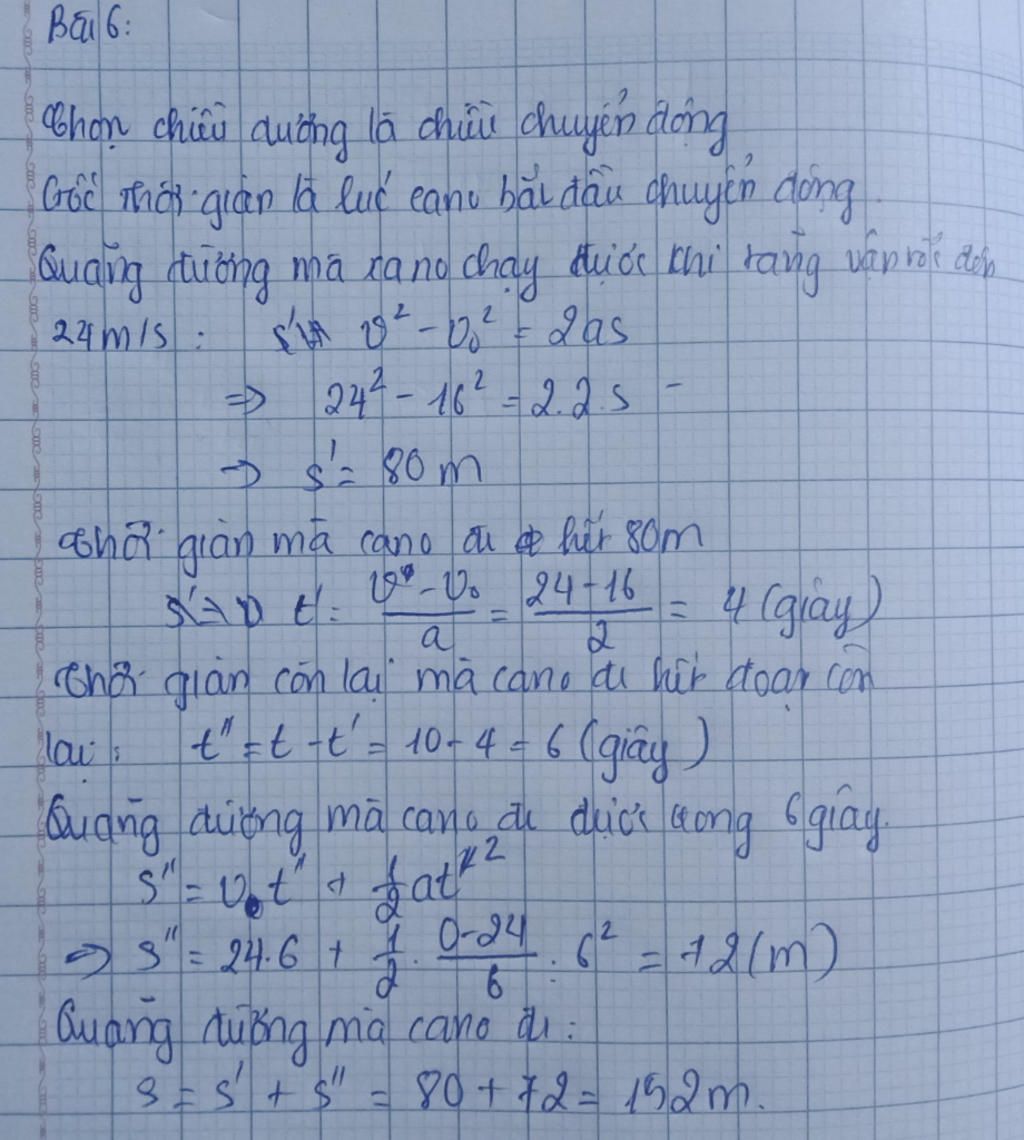 Bài 6:
Chọn chiều dương là chiều chuyển động
Gốc thời gian là lúc cano bắt đầu chuyển động.
Quãng đường mà cano chạy được khi tăng vận tốc đến
24m/s : v² - v₀² = 2as
⇒ 24² - 16² = 2.2.s
→ s' = 80 m
Thời gian mà cano đi hết 80m
t' = \frac{v - v₀}{a} = \frac{24 - 16}{2} = 4 (giây)
Thời gian còn lại mà cano đi hết đoạn còn
lại : t'' = t - t' = 10 - 4 = 6 (giây)
Quãng đường mà cano đi được trong 6 giây.
s'' = v₀t'' + \frac{1}{2}at''²
⇒ s'' = 24.6 + \frac{1}{2} . \frac{0-24}{6} . 6² = 72 (m)
Quãng đường mà cano đi :
s = s' + s'' = 80 + 72 = 152m.